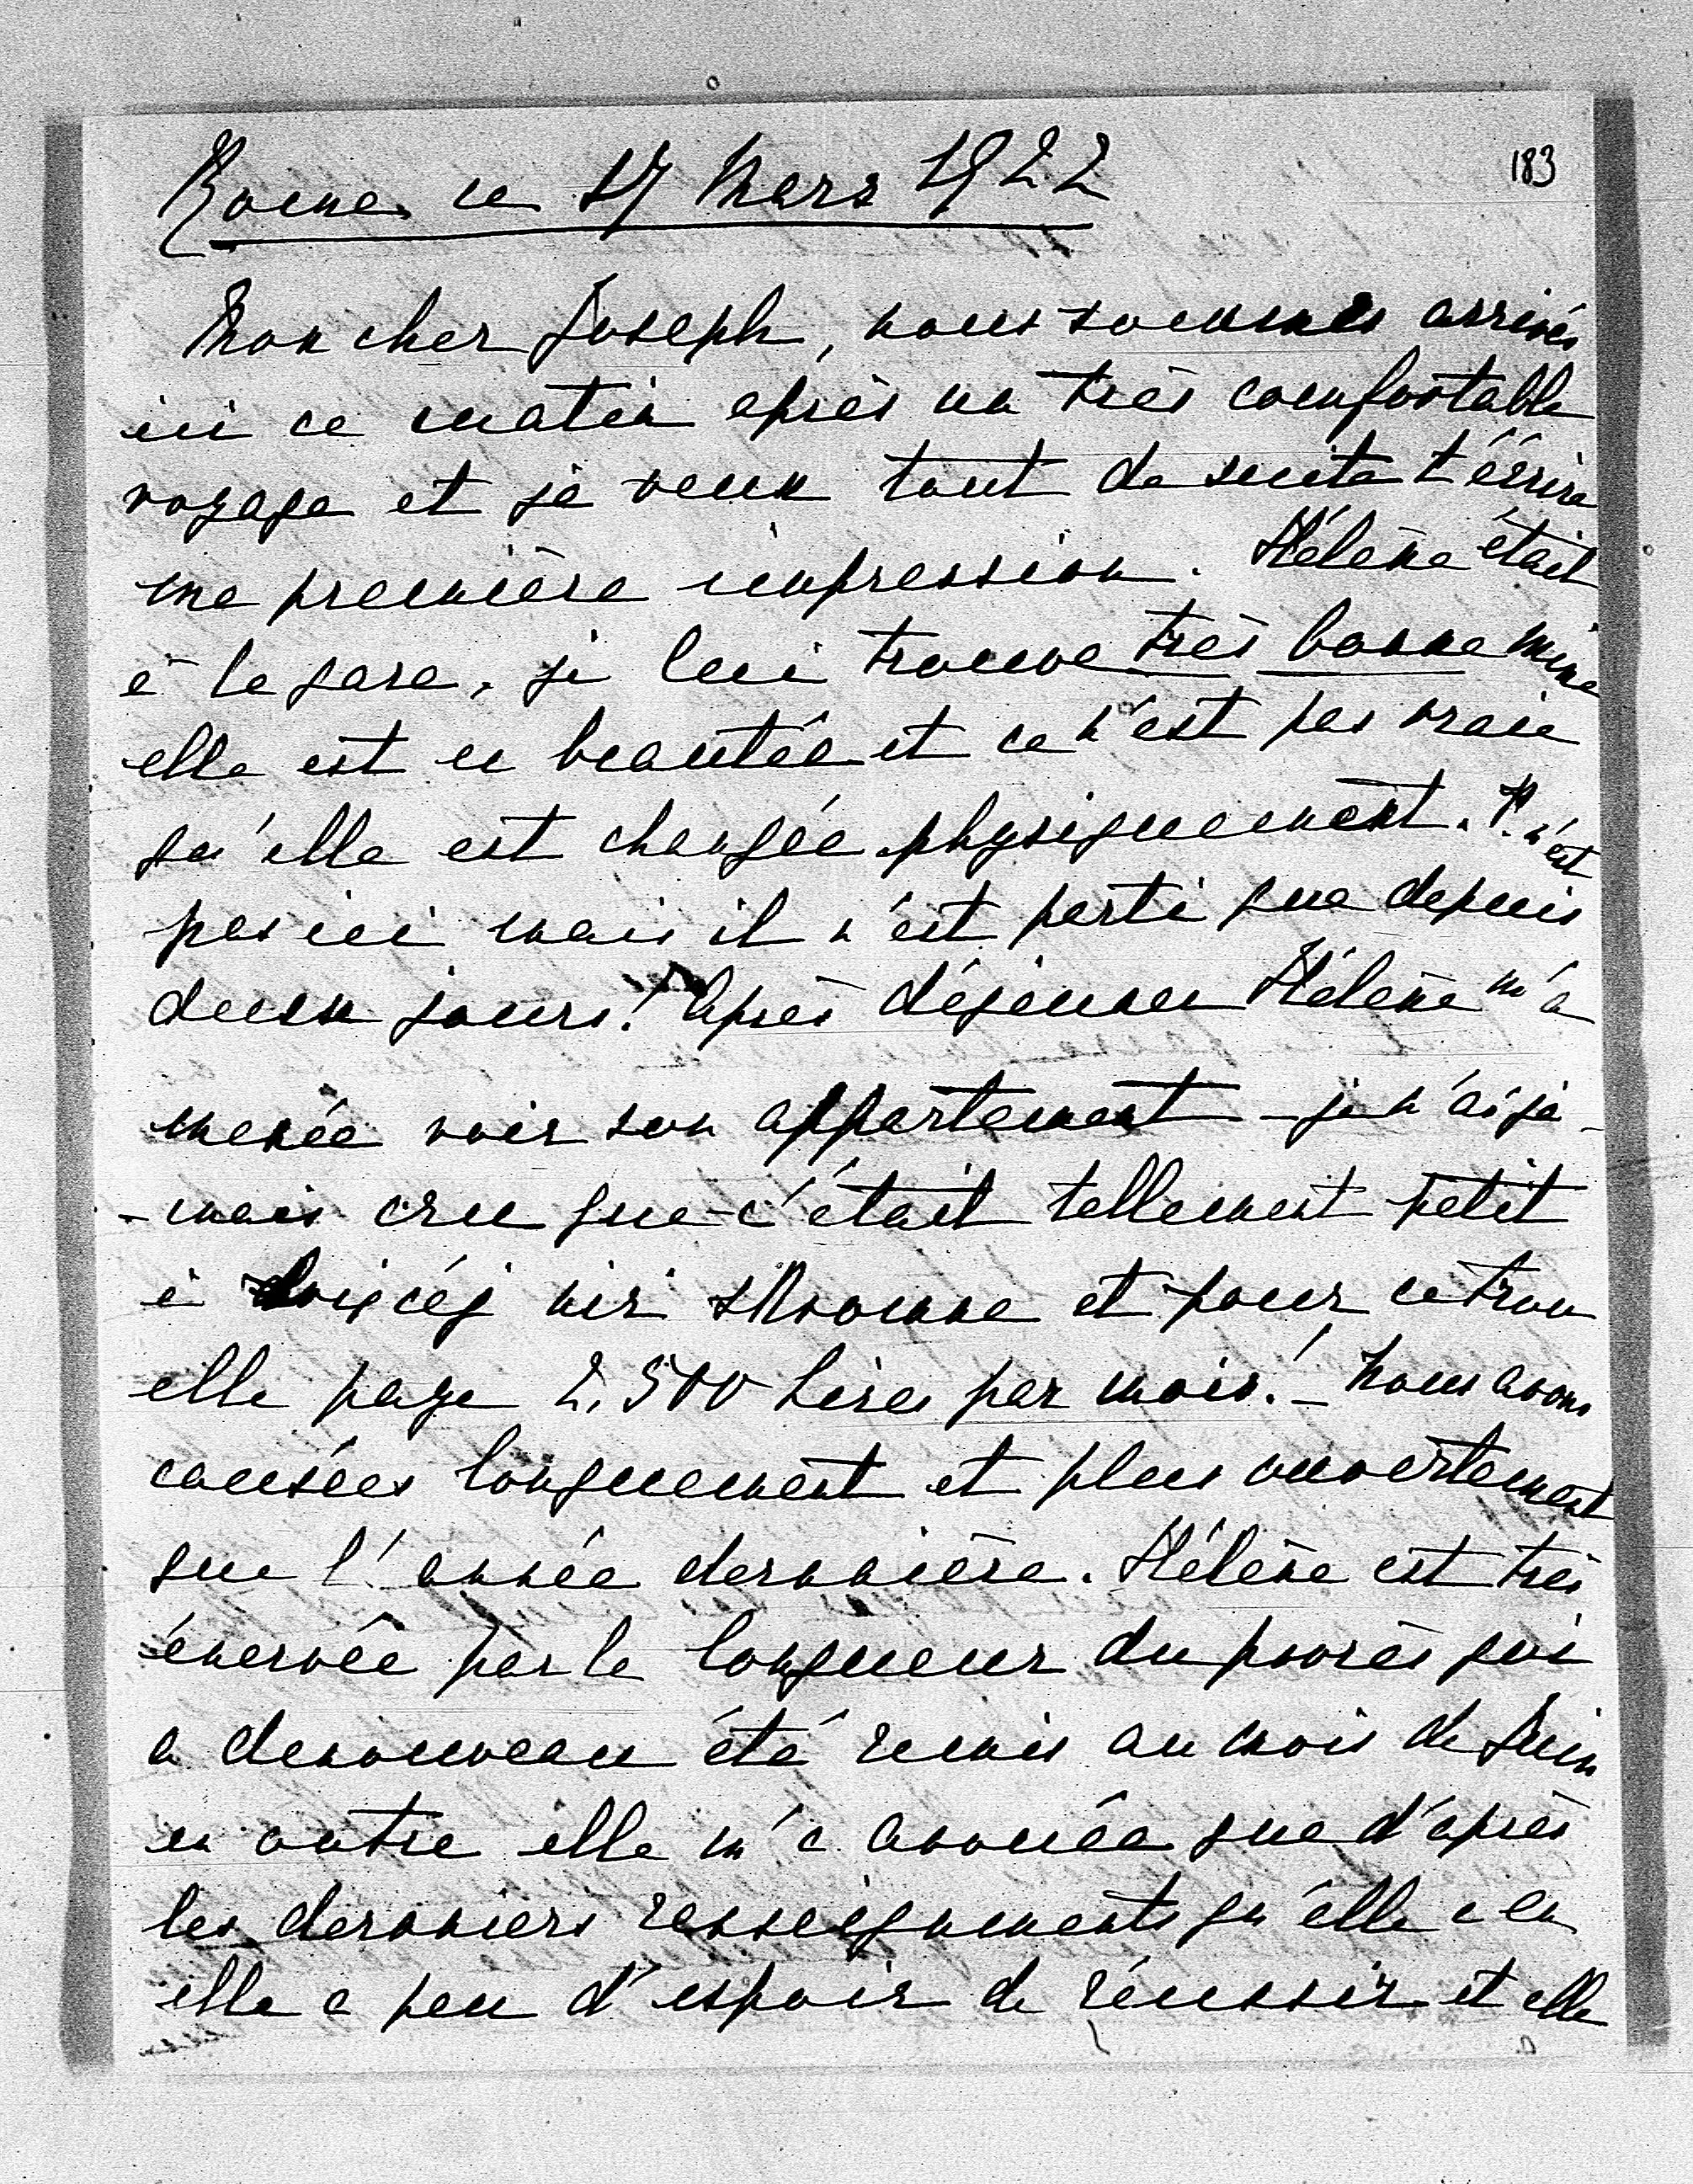 183
Rome ce 17 Mars 1922
Mon cher Joseph, nous sommes arrivés
ici ce matin après un très comfortable
voyage et je veux tout de suite t'écrire
ma première impression. Hélène était
à la gare, je lui trouve très bonne mine
elle est en beautée et ce n'est pas vraie
qu'elle est changée physiquement. P. n'est
pas ici mais il n'est parti que depuis
deux jours! Après déjeuner Hélène m'a
menée voir son appartement – je n'ai ja-
-mais cru que c'était tellement petit
et pour ce trou
elle paye 2,500 Lires par mois! – Nous avons
causées longuement et plus ouvertement
que l'année dernnière. Hélène est très
énervée par la longueur du procès qui
a denouveau été remis au mois de Juin
en outre elle m'a avouée que d'après
les dernniers renseignements qu'elle a eu
elle a peu d'espoir de réussir et elle